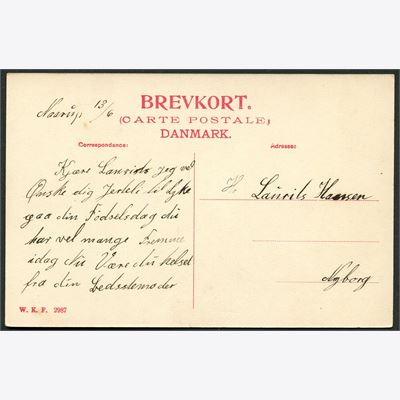 Nasrup 13/6
BREVKORT.
(CARTE POSTALE)
DANMARK.
Correspondance:
Adresse:
Kjære Laurids jeg vil
Ønske dig Herteli til lykke
paa din Fødselsdag du
har vel mange Fremme
idag Nu Være du helset
fra din Bedstemoder
H. Laurits Hansen
Nyborg
W. K. F. 2987